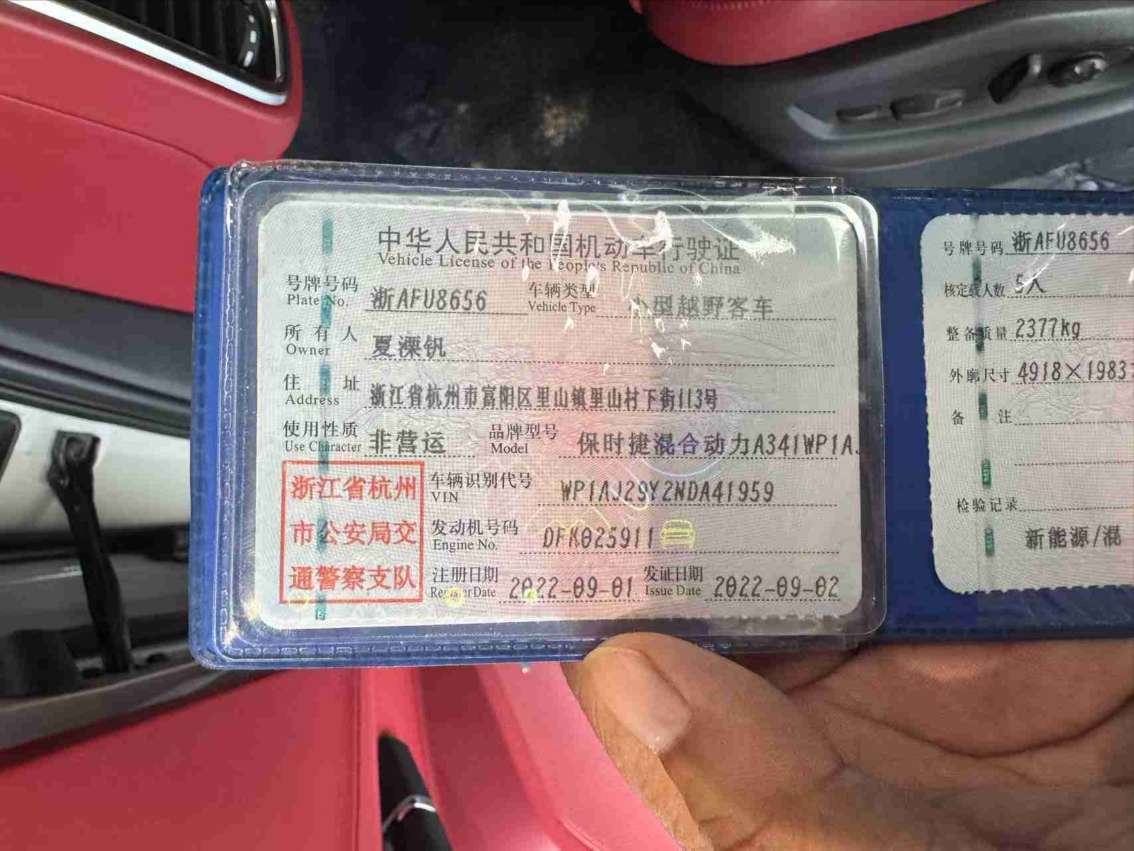 中华人民共和国机动车行驶证
Vehicle License of the People's Republic of China
号牌号码 浙AFU8656 车辆类型 小型越野客车
Plate No. Vehicle Type
所有人 夏溧钒
Owner
住址 浙江省杭州市富阳区里山镇里山村下街113号
Address
使用性质 非营运 品牌型号 保时捷混合动力A341WP1A
Use Character Model
浙江省杭州
市公安局交
通警察支队
车辆识别代号 WP1AJ29Y2NDA41959
VIN
发动机号码 DFK025911
Engine No.
注册日期 2022-09-01 发证日期 2022-09-02
Register Date Issue Date
号牌号码 浙AFU8656
核定载人数 5人
整备质量 2377kg
外廓尺寸 4918×1983
备注
检验记录
新能源/混